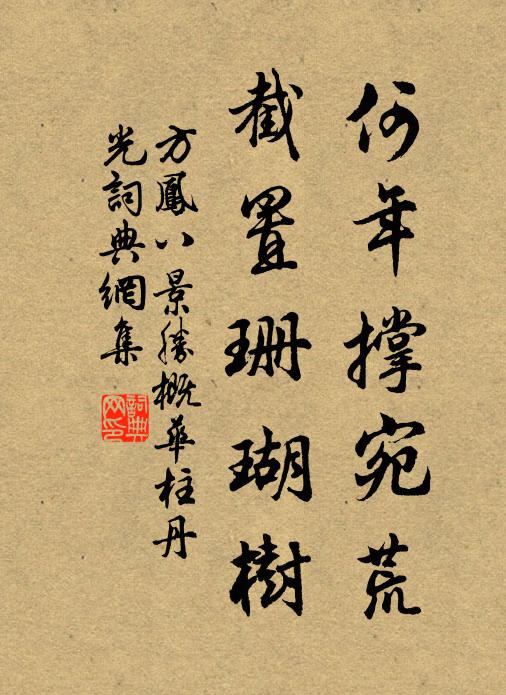 何年撐宛荒
截置珊瑚樹
方鳳八景勝概華柱丹
光詞典網集
詞典網印